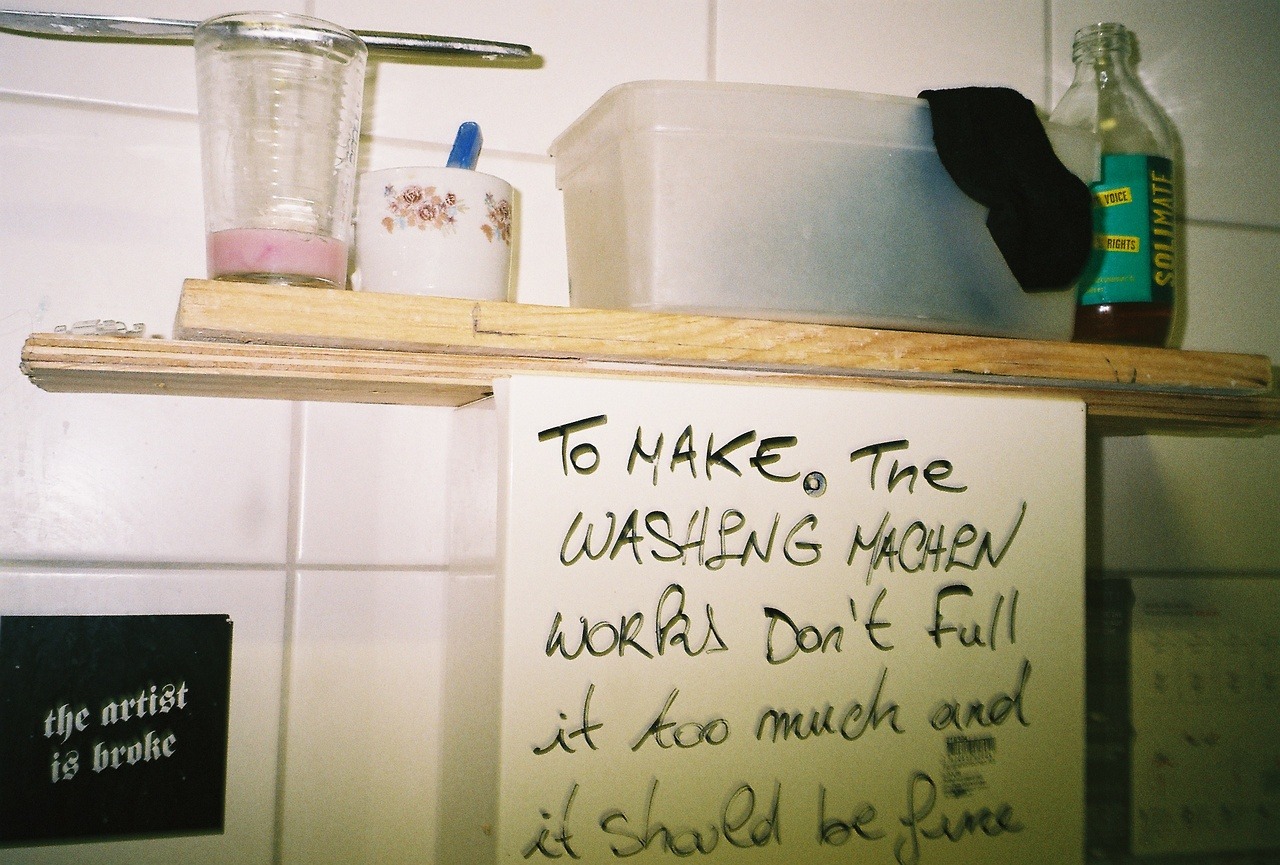 VOICE
RIGHTS
SOLIMATE
TO MAKE. The
WASHING MACHIN
WORKS Don't Full
it too much and
it should be fine
the artist
is broke